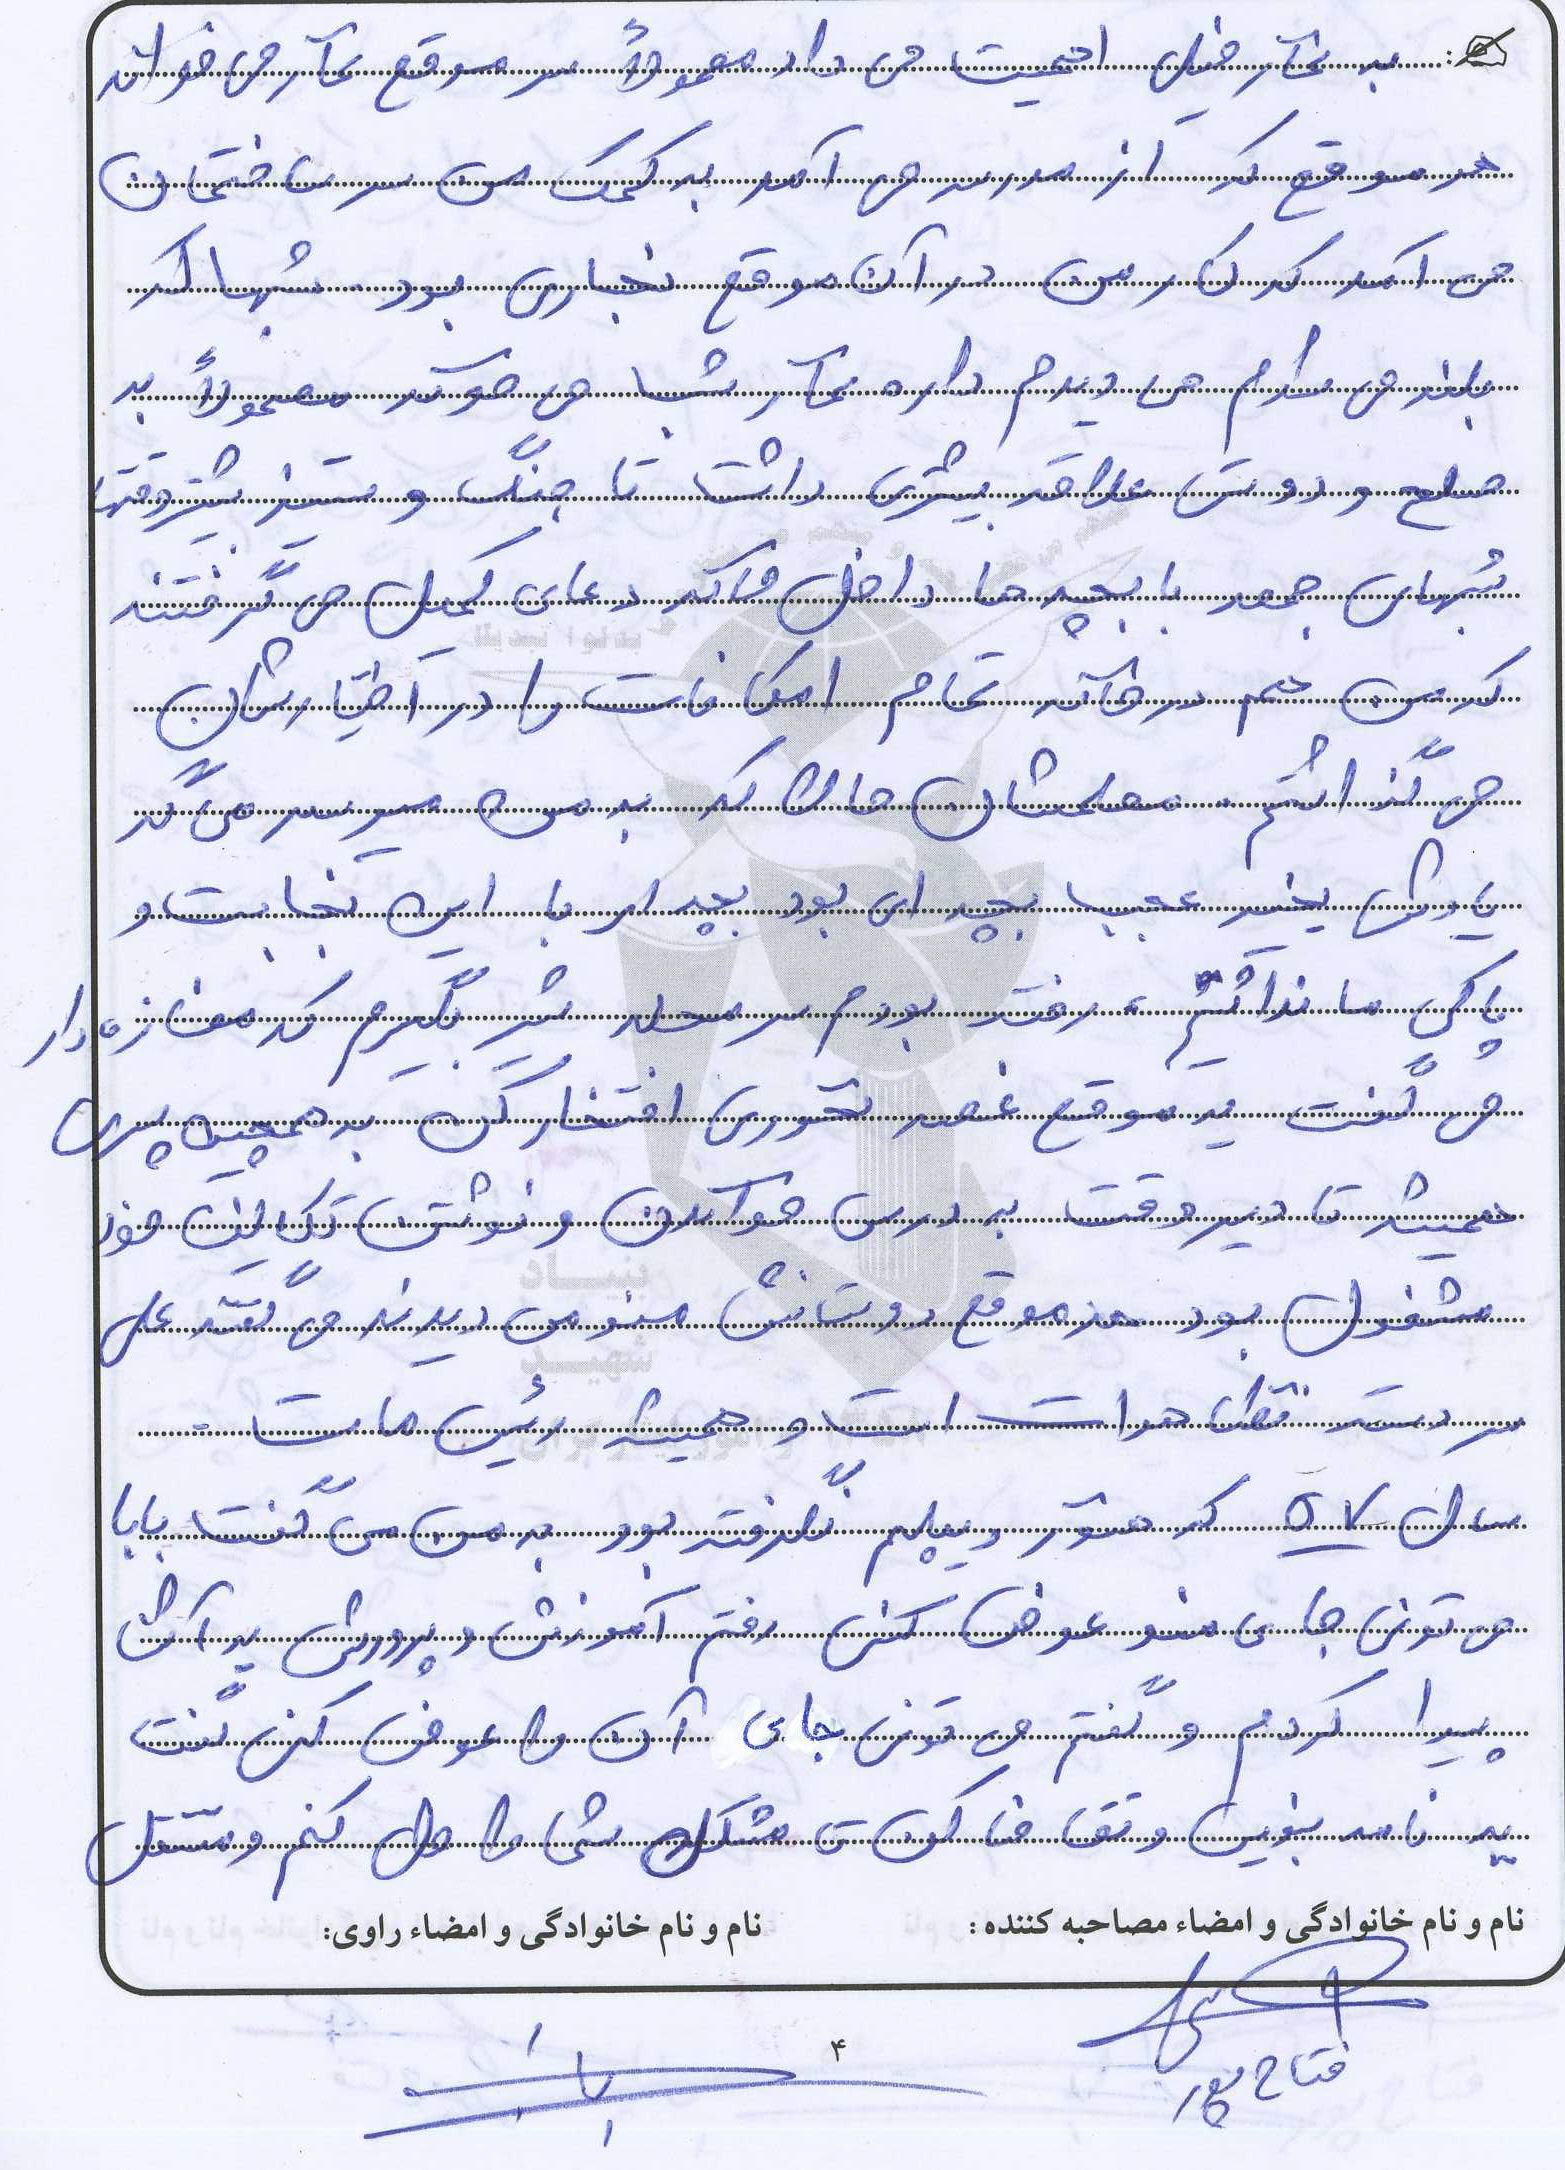 به نماز خیلی اهمیت می داد معمولاً سر موقع نماز می خواند
هر موقع که از مدرسه می آمد به کمک من سر ساختمان
می آمد که کار من در آن موقع نجاری بود. شبها که
بلند می شدم می دیدم داره نماز شب می خونه معمولاً به
صلح و دوستی علاقه بیشتری داشت تا جنگ و ستیز بیشتر وقتها
شبهای جمعه با بچه ها داخل خانه دعای کمیل می گرفتند
که من هم در خانه تمام امکانات را در اختیارشان
می گذاشتم. معلمشان حالا که به من میرسد می گه
یادش بخیر عجب بچه ای بود بچه ای با این نجابت و
پاکی ما نداشتیم، رفته بودم سر محله شیر بگیرم که مغازه دار
می گفت یه موقع غصه نخوری افتخار کن به همچین پسری
همیشه تا دیر وقت به درس خواندن و نوشتن تکالیف خود
مشغول بود هر موقع دوستانش منو می دیدند می گفتند علی
سر دسته است و همیشه رئیس ماست.
سال ۵۷ که هنوز دیپلم نگرفته بود به من می گفت بابا
می تونی جای منو عوض کنی رفتم آموزش و پرورش یه آشنا
پیدا کردم و گفتم می تونی جای آن را عوض کنی گفت
یه نامه بنویس و تقاضا کن تا مشکل شما را حل کنم و منتقل
نام و نام خانوادگی و امضاء مصاحبه کننده:
نام و نام خانوادگی و امضاء راوی:
فتاح پور
۴
بنیاد
شهید